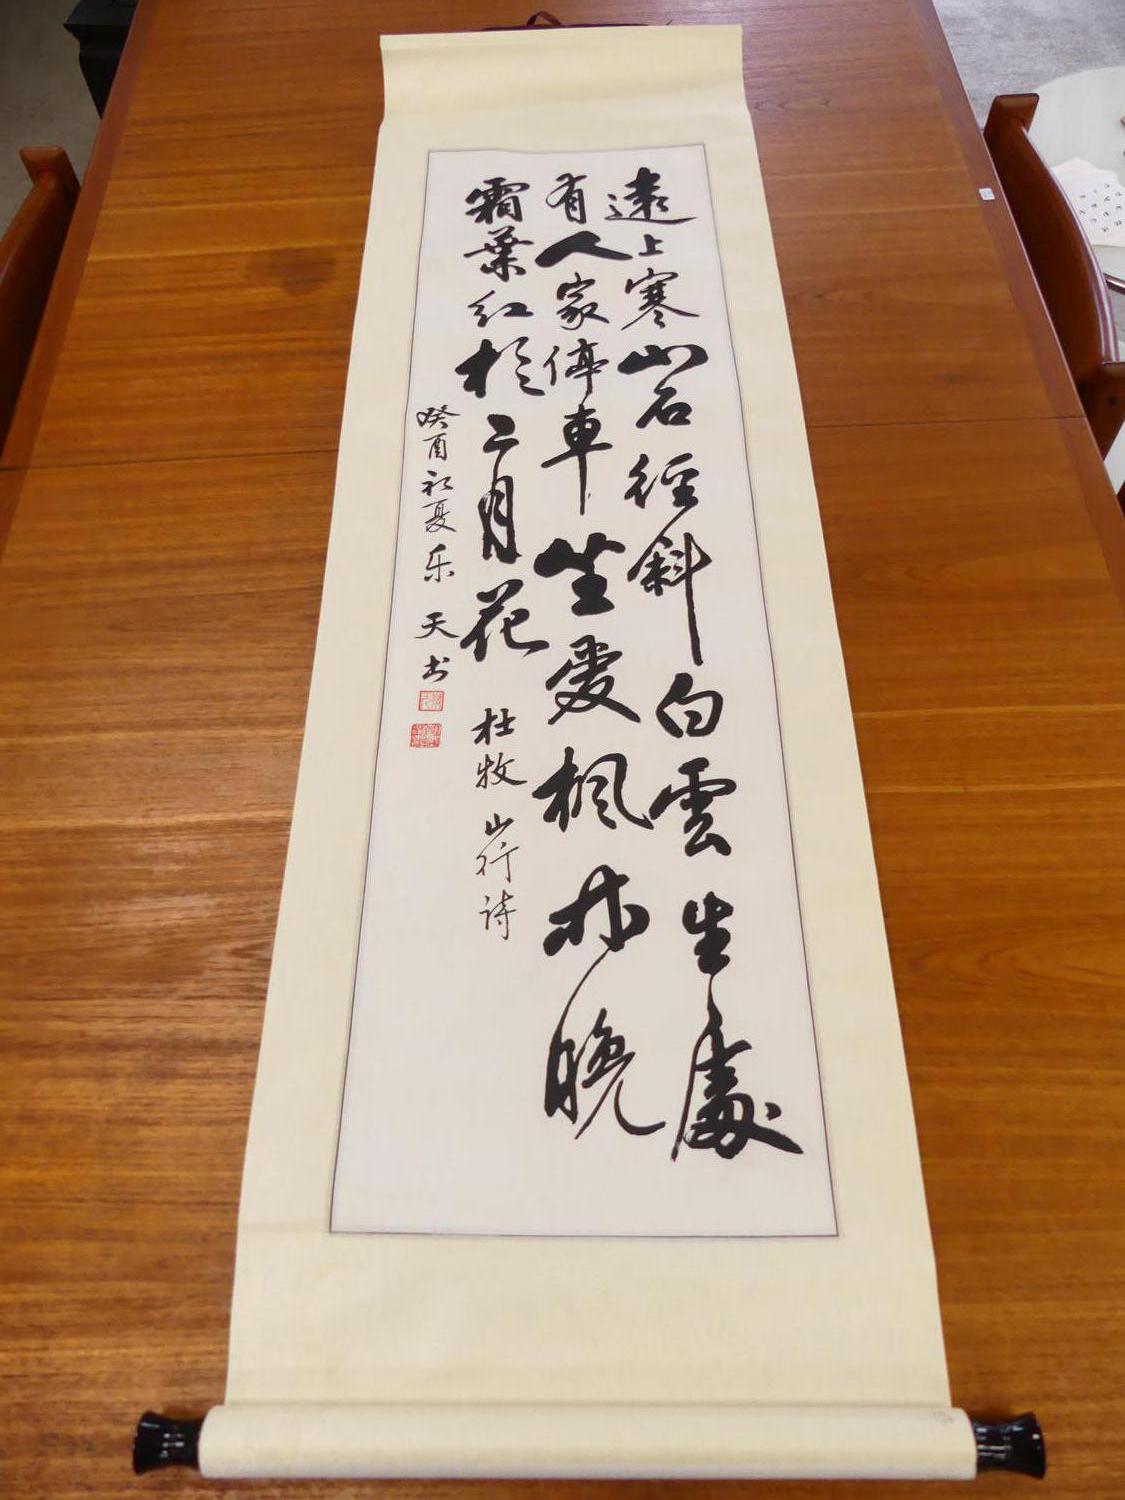 遠上寒山石徑斜白雲生處
有人家停車坐愛楓林晚
霜葉紅於二月花 杜牧 山行诗
癸酉初夏乐天书